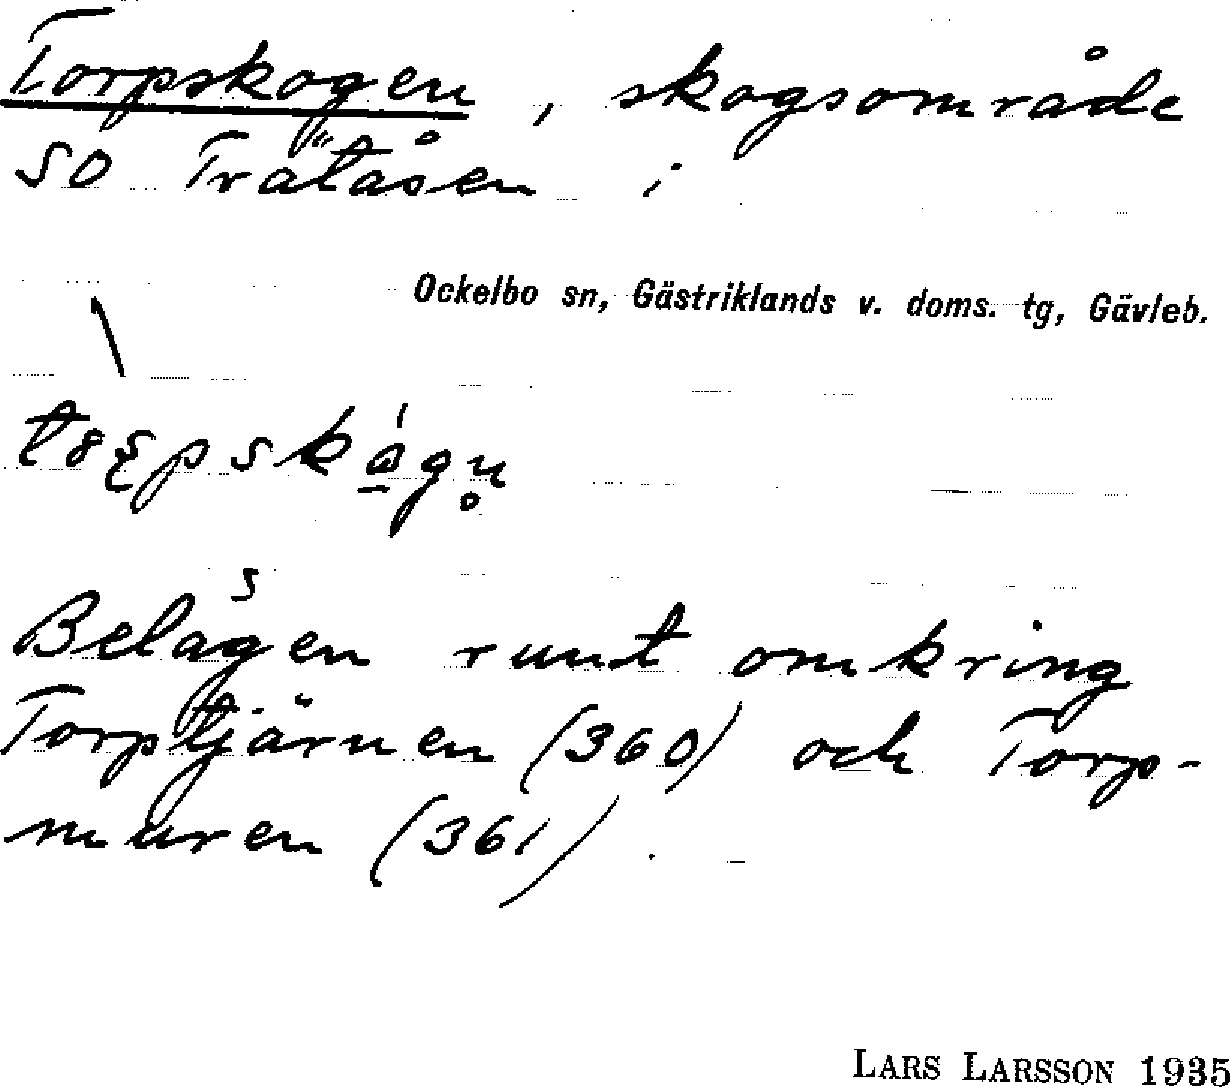 Torpskogen, skogsområde
SO Trätåsen i
Ockelbo sn, Gästriklands v. doms. tg, Gävleb.
Belägen runt omkring
Torptjärnen (360) och Torp-
muren (361). –
LARS LARSSON 1935